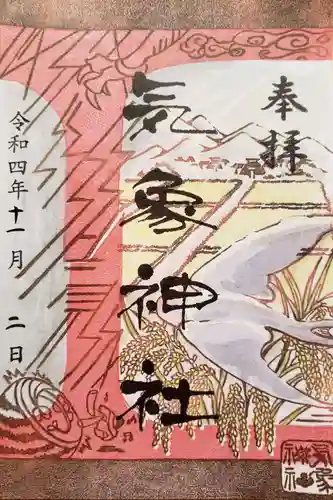 奉拝
気象神社
令和四年十一月二日
気象神社